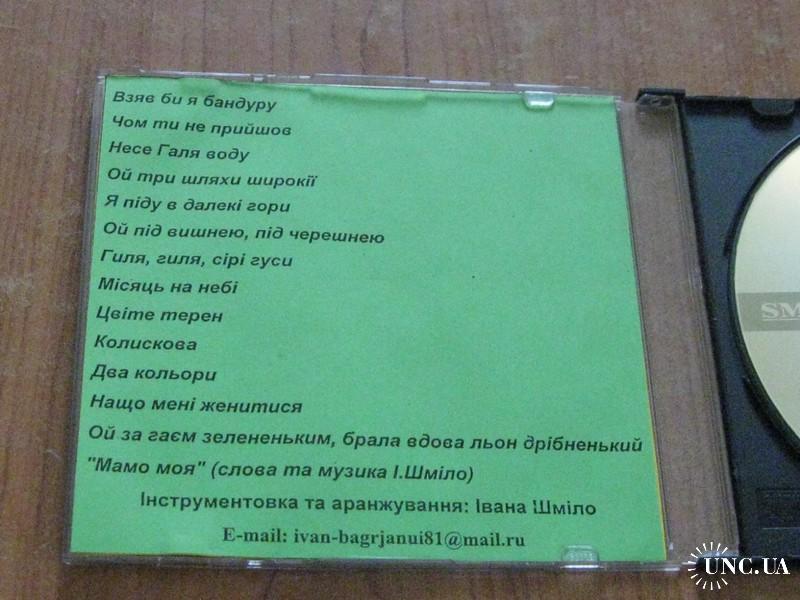 Взяв би я бандуру
Чом ти не прийшов
Несе Галя воду
Ой три шляхи широкії
Я піду в далекі гори
Ой під вишнею, під черешнею
Гиля, гиля, сірі гуси
Місяць на небі
Цвіте терен
Колискова
Два кольори
Нащо мені женитися
Ой за гаєм зелененьким, брала вдова льон дрібненький
"Мамо моя" (слова та музика І.Шміло)
Інструментовка та аранжування: Івана Шміло
E-mail: ivan-bagrjanui81@mail.ru
SM
UNC.UA